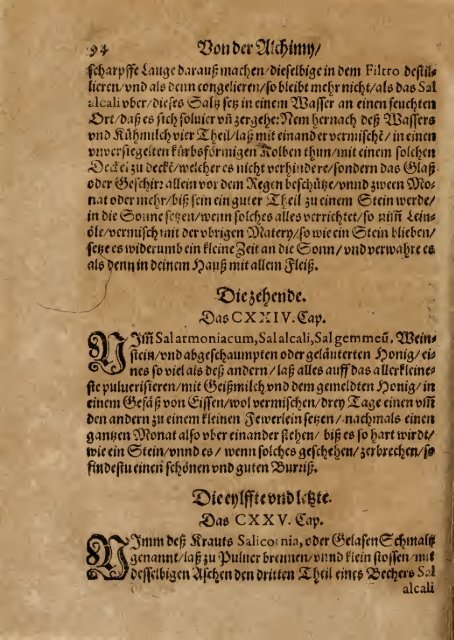 94 Von der Alchimy/
scharpffe Lauge darauß machen/dieselbige in dem Filtro destil-
lieren/vnd als denn congelieren/so bleibt mehr nicht/als das Sal
alcali vber/dieses Saltz setz in einem Wasser an einen feuchten
Ort/daß es sich soluier vñ zergehe: Nem hernach deß Wassers
vnd Kühmilch vier Theil/laß mit einander vermischẽ/in einen
vnuersiegelten kürbsförmigen Kolben thun/mit einem solchen
Deckel zu deckẽ/welcher es nicht verhindere/sondern das Glaß
oder Geschirr allein vor dem Regen beschütze/vnnd zween Mo-
nat oder mehr/biß sein ein guter Theil zu einem Stein werde/
in die Sonne setzen/wenn solches alles verrichtet/so nim̃ Lein-
öle/vermisch mit der vbrigen Matery/so wie ein Stein blieben/
setze es widerumb ein kleine Zeit an die Sonn/vnd verwahre es
als denn in deinem Hauß mit allem Fleiß.
Die zehende.
Das CXXIV. Cap.
NIm̃ Sal armoniacum, Sal alcali, Sal gemmeũ, Wein-
stein/vnd abgeschaumpten oder geläuterten Honig/ei-
nes so viel als deß andern/laß alles auff das allerkleine-
ste puluerisieren/mit Geißmilch vnd dem gemeldten Honig/in
einem Gefäß von Eissen/wol vermischen/drey Tage einen vm̃
den andern zu einem kleinen Fewerlein setzen/nachmals einen
gantzen Monat also vber einander stehen/biß es so hart wirdt/
wie ein Stein/vnnd es/wenn solches geschehen/zerbrechen/so
findestu einen schönen vnd guten Burniß.
Die eylffte vnd letzte.
Das CXXV. Cap.
NImm deß Krauts Salicornia, oder Gelasen Schmaltz
genannt/laß zu Puluer brennen/vnnd klein stossen/mit
desselbigen Aschen den dritten Theil eines Bechers Sal
alcali